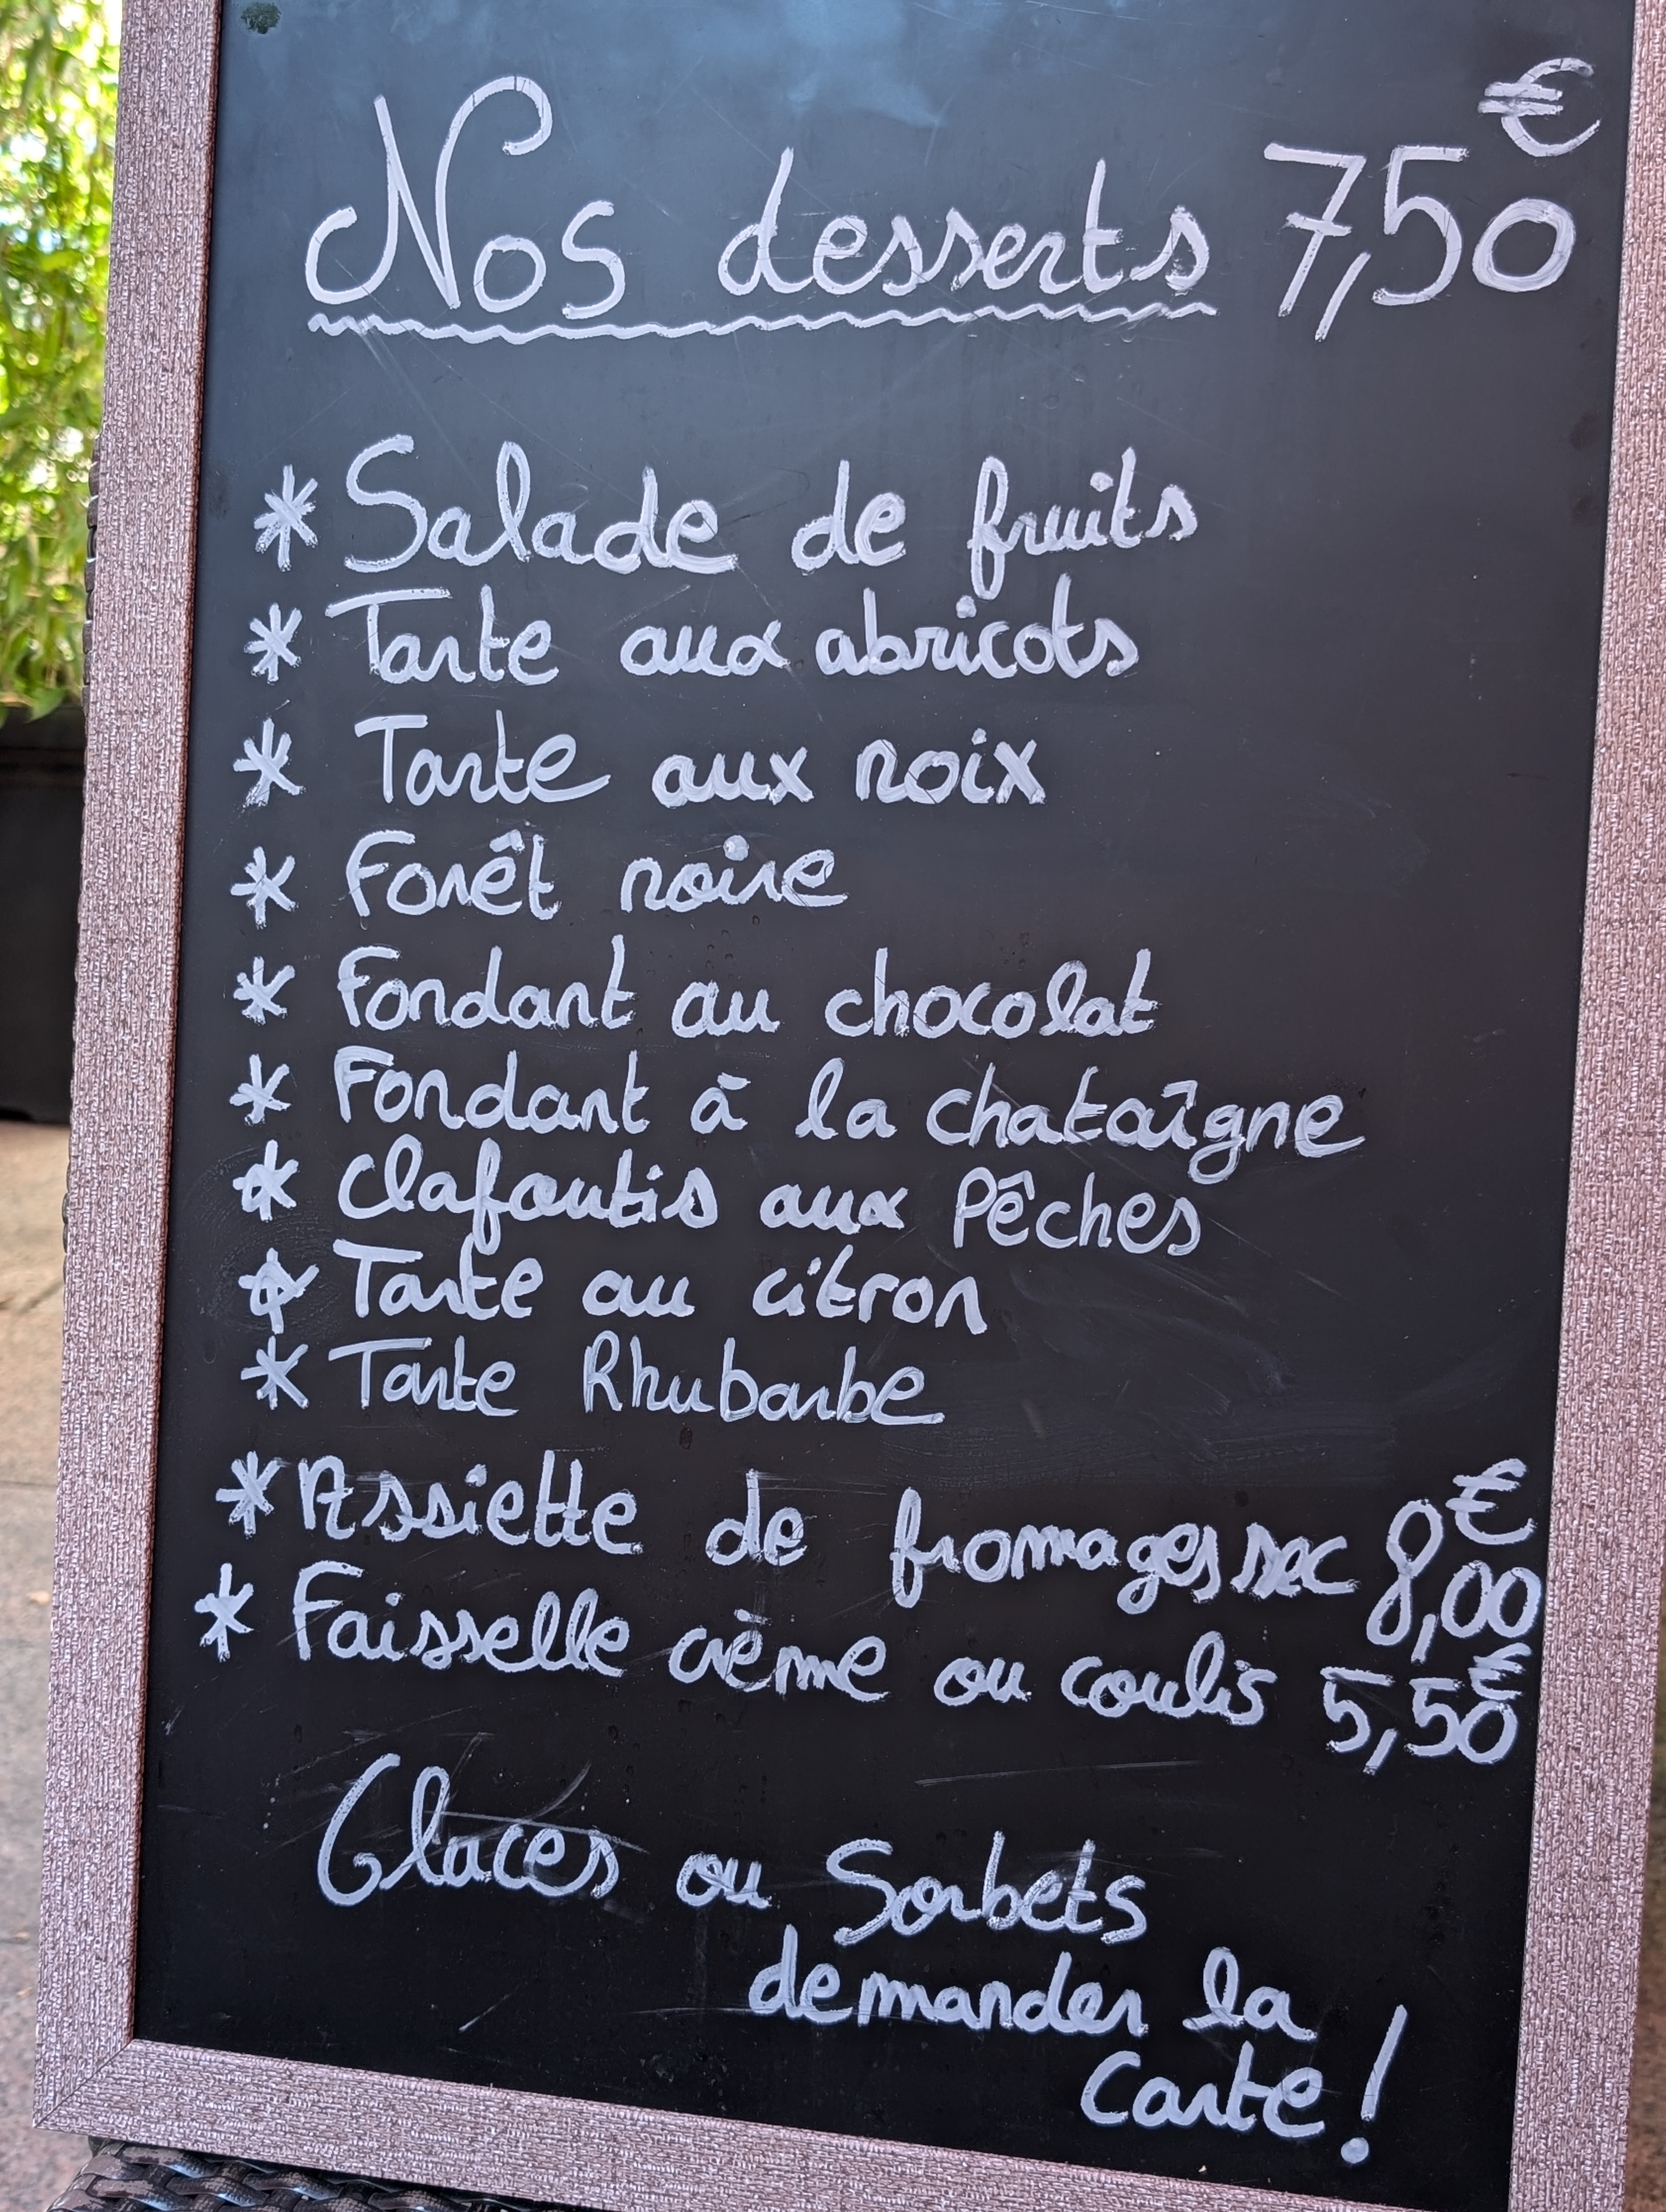 Nos desserts 7,50 €
* Salade de fruits
* Tarte aux abricots
* Tarte aux noix
* Forêt noire
* Fondant au chocolat
* Fondant à la chataîgne
* Clafoutis aux Pêches
* Tarte au citron
* Tarte Rhubarbe
* Assiette de fromages sec 8,00 €
* Faisselle crème ou coulis 5,50 €
Glaces ou Sorbets
demander la
Carte !